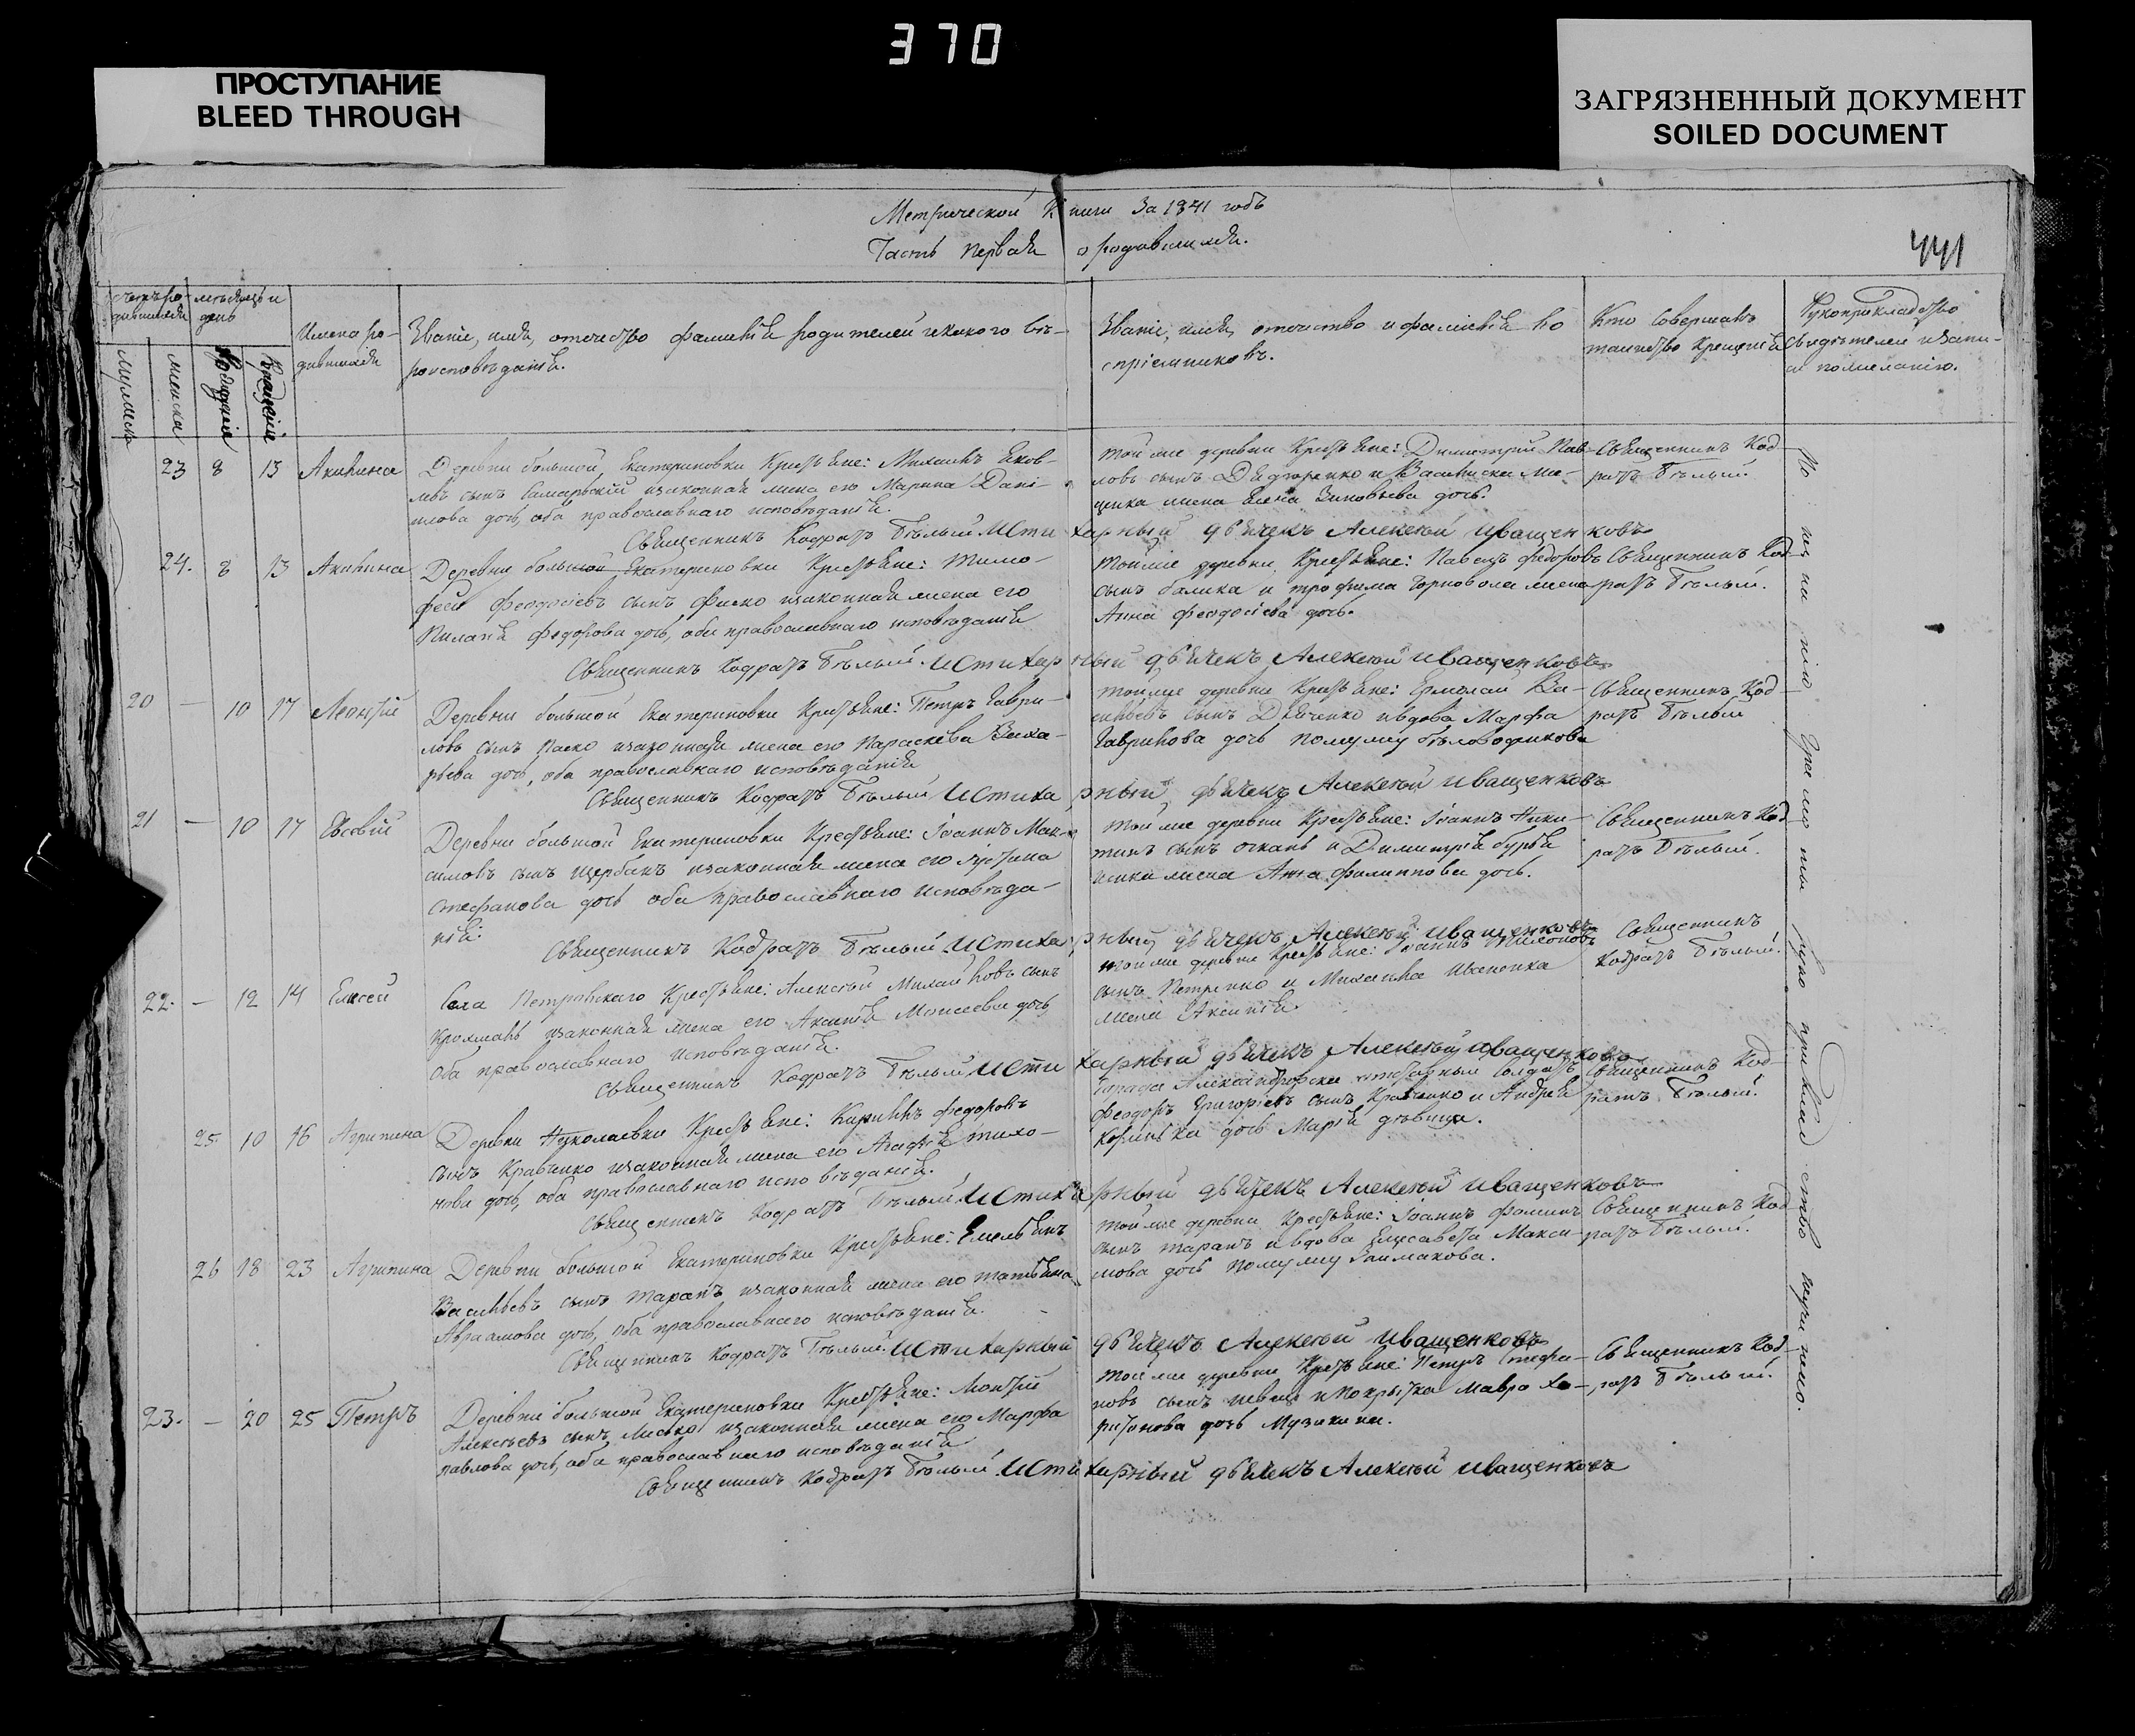 370
ПРОСТУПАНИЕ
BLEED THROUGH
ЗАГРЯЗНЕННЫЙ ДОКУМЕНТ
SOILED DOCUMENT
Метрической Книги За 1841 годъ
Часть Первая о родившихся.
441
мѣсяцъ и день
Имена родившихся
Званіе, имя, отечество фамилія родителей и какого вѣроисповѣданія.
Званіе, имя, отечество и фамилія воспріемниковъ.
Кто совершалъ таинство крещенія
Рукоприкладство свидѣтелей
по желанію.
мужеска
женска
Рожденія
Крещенія
23 8 13 Акилина
Деревни большой Екатериновки Крестьяне: Михаилъ Яков-
левъ сынъ Самарскій и законная жена его Марина Дані-
илова дочь, оба православнаго исповѣданія.
той же деревни Крестьяне: Димитрій Пав-
ловъ сынъ Дядюренко и
жена Елена Зиновьева дочь.
Священникъ Кодратъ Бѣлый
Священникъ Кодратъ Бѣлый И Стихарный дьячекъ Алексѣй Иващенковъ
24. 8 13 Акилина
Деревни большой Екатериновки Крестьяне: Тимо-
фей Феодосіевъ сынъ и законная жена его
Пилагія Федорова дочь, оба православнаго исповѣданія
той же деревни Крестьяне: Павелъ Федоровъ
сынъ балика и трофима Чорновола жена
Анна Феодосіева дочь.
Священникъ Кодратъ Бѣлый.
Священникъ Кодратъ Бѣлый. И Стихарный дьячекъ Алексѣй Иващенковъ
20 — 10 17 Леонтій
Деревни большой Екатериновки Крестьяне: Петръ Гаври-
ловъ сынъ Паско и законная жена его Параскева Заха-
рьева дочь, оба православнаго исповѣданія
той же деревни Крестьяне: Ермолай Ва-
сильевъ сынъ Дяченко и вдова Марфа
Гаврилова дочь по мужу бѣловодикова
Священникъ Кодратъ Бѣлый
Священникъ Кодратъ Бѣлый И Стихарный дьячекъ Алексѣй Иващенковъ
21 — 10 17 Евсевій
Деревни большой Екатериновки Крестьяне: Іоаннъ Мак-
симовъ сынъ Щербакъ и законная жена его Іустина
Стефанова дочь оба православнаго исповѣда-
нія.
той же деревни Крестьяне: Іоаннъ Ники-
тинъ сынъ и Димитрія
жена Анна Филиппова дочь.
Священникъ Кодратъ Бѣлый.
Священникъ Кодратъ Бѣлый. И Стихарный дьячекъ Алексѣй Иващенковъ
22. — 12 14 Елисей
Села Петровскаго Крестьяне: Алексѣй Михайловъ сынъ
и законная жена его Аксинія Моисеева дочь
оба православнаго исповѣданія.
той же деревни Крестьяне: Іоаннъ
сынъ Петренко и Михаила
жена Аксинія.
Священникъ Кодратъ Бѣлый.
Священникъ Кодратъ Бѣлый И Стихарный дьячекъ Алексѣй Иващенковъ
25. 10 16 Агрипина
Деревни Николаевки Крестьяне: Кирилъ Федоровъ
сынъ Кравченко и законная жена его Агафія тихо-
нова дочь, оба православнаго исповѣданія.
Города Александровска солдатъ
Феодоръ Григоріевъ сынъ Кравченко и Андрея
дочь Марія дѣвица.
Священникъ Кодратъ Бѣлый.
Священникъ Кодратъ Бѣлый И Стихарный дьячекъ Алексѣй Иващенковъ
26 18 23 Агрипина
Деревни большой Екатериновки Крестьяне: Емельянъ
Васильевъ сынъ таранъ и законная жена его татьяна
Авраамова дочь, оба православнаго исповѣданія.
той же деревни Крестьяне: Іоаннъ Фоминъ
сынъ таранъ и вдова Елисавета Макси-
мова дочь по мужу
Священникъ Кодратъ Бѣлый.
Священникъ Кодратъ Бѣлый. И Стихарный дьячекъ Алексѣй Иващенковъ
23. — 20 25 Петръ
Деревни большой Екатериновки Крестьяне: Леонтій
Алексѣевъ сынъ и законная жена его Марфа
павлова дочь, оба православнаго исповѣданія
той же деревни Крестьяне: Петръ Стефа-
новъ сынъ швецъ и покрытка Мавра Ха-
ритонова дочь
Священникъ Кодратъ Бѣлый.
Священникъ Кодратъ Бѣлый. И Стихарный дьячекъ Алексѣй Иващенковъ